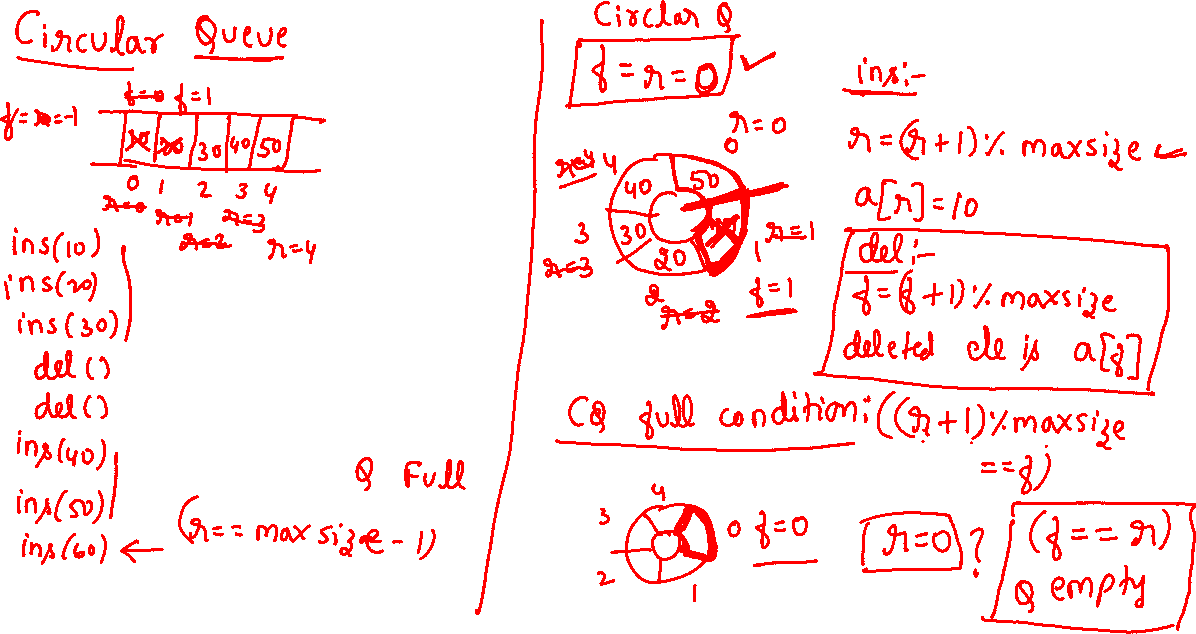 Circular Queue
f=0 f=1
f=r=-1
10 20 30 40 50
0 1 2 3 4
r=0 r=1 r=2 r=3 r=4
ins(10)
ins(20)
ins(30)
del()
del()
ins(40)
ins(50)
ins(60) ← (r==maxsize-1)
Q Full
Circlar Q
f=r=0 ✓
r=0
0
r=4 4
40 50
3 30 20 1 r=1
r=3
2
r=2 f=1
ins:-
r=(r+1)% maxsize ✓
a[r]=10
del:-
f=(f+1)% maxsize
deleted ele is a[f]
CQ full condition: ((r+1)% maxsize
==f)
4
3 0 f=0
2 1
r=0 ?
(f==r)
Q empty